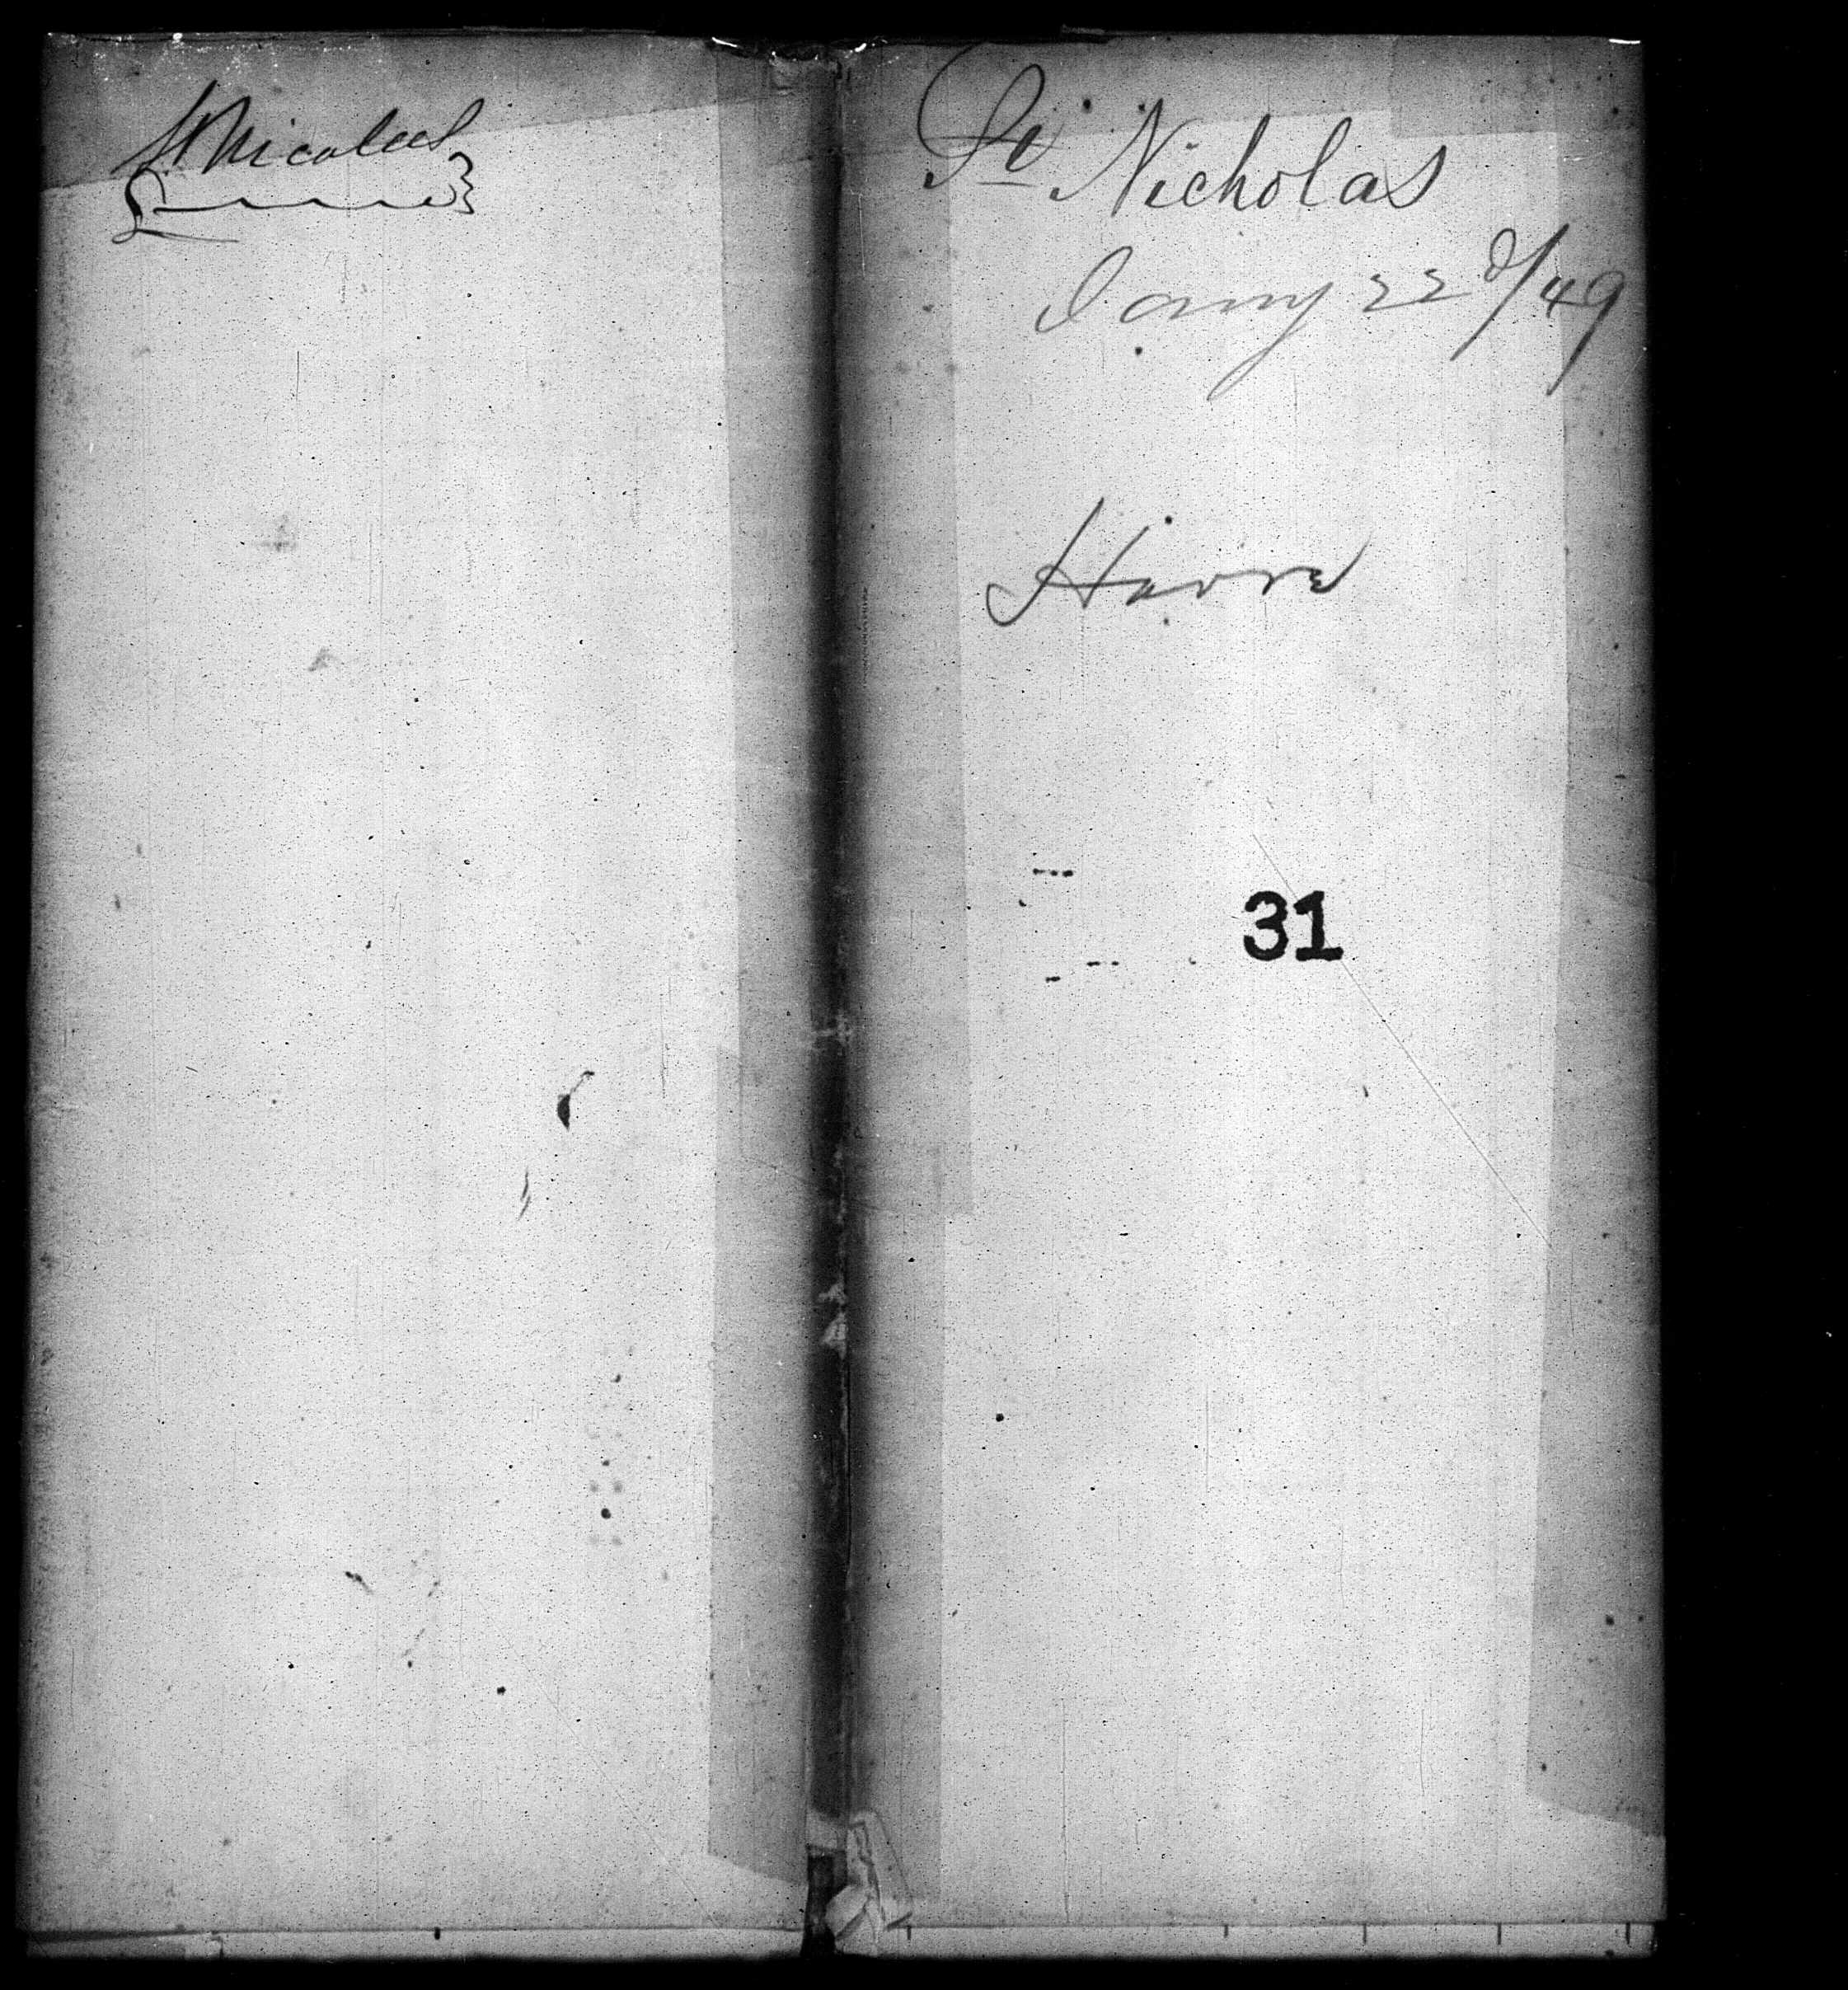 St Nicolas
St Nicholas
Jany 22d/49
Havre
31